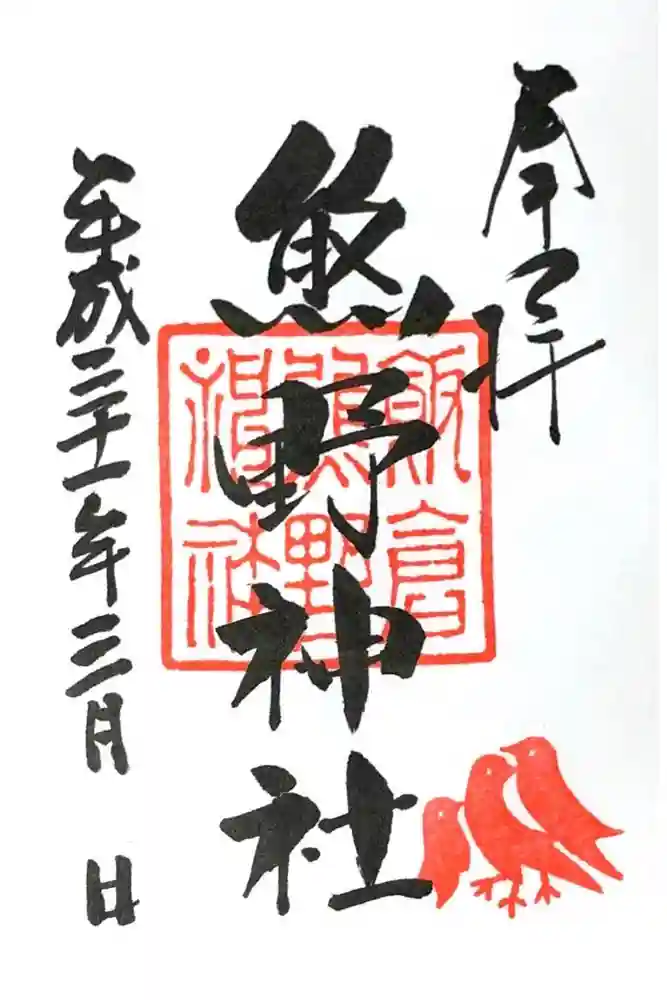 奉拝
熊野神社
飯倉
熊野
神社
平成三十一年三月 日